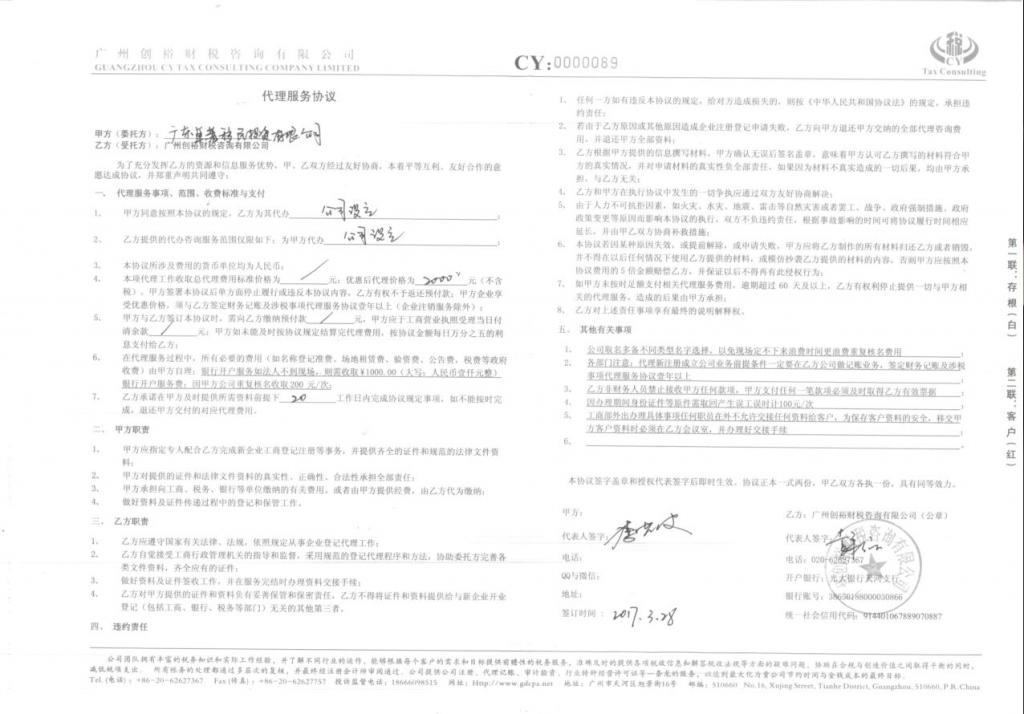 广州创裕财税咨询有限公司
GUANGZHOU CY TAX CONSULTING COMPANY LIMITED
CY:0000089
CY
Tax Consulting
代理服务协议
甲方（委托方）：广东 移民 有限公司
乙方（受托方）：广州创裕财税咨询有限公司
为了充分发挥乙方的资源和信息服务优势，甲、乙双方经过友好协商，本着平等互利、友好合作的意
愿达成协议，并郑重声明共同遵守：
一、 代理服务事项、范围、收费标准与支付
1、 甲方同意按照本协议的规定，乙方为其代办 公司设立 ；
2、 乙方提供的代办咨询服务范围仅限如下：为甲方代办 公司设立 ；
3、 本协议所涉及费用的货币单位均为人民币；
4、 本项代理工作收取总代理费用标准价格为 / 元；优惠后代理价格为 2000 元（不含
税），甲方签署本协议后单方面停止履行或违反本协议内容，乙方有权不予退还预付款；甲方企业享
受优惠价格，须与乙方签定财务记账及涉税事项代理服务协议壹年以上（企业注销服务除外）；
5、 甲方与乙方签订本协议时，需向乙方缴纳预付款 / 元，甲方应于工商营业执照受理当日付
清余款 / 元；甲方如未能及时按协议规定结算完代理费用，按协议金额每日万分之五的利
息支付给乙方；
6、 在代理服务过程中，所有必要的费用（如名称登记准费、场地租赁费、验资费、公告费，税费等政府
收费）由甲方自理；银行开户服务如法人不到现场，则需收取¥1000.00（大写：人民币壹仟元整）
银行开户服务费；因甲方公司重复核名收取 200 元/次；
7、 乙方承诺在甲方及时提供所需资料前提下 20 工作日内完成协议规定事项，如不能按时完
成，退还甲方交付的对应代理费用。
二、 甲方职责
1、 甲方应指定专人配合乙方完成新企业工商登记注册等事务，并提供齐全的证件和规范的法律文件资
料；
2、 甲方对提供的证件和法律文件资料的真实性、正确性、合法性承担全部责任；
3、 甲方承担向工商、税务、银行等单位缴纳的有关费用，或者由甲方提供经费，由乙方代为缴纳；
4、 做好资料及证件传递过程中的登记和保管工作。
三、 乙方职责
1、 乙方应遵守国家有关法律、法规，依照规定从事企业登记代理工作；
2、 乙方自觉接受工商行政管理机关的指导和监督，采用规范的登记代理程序和方法，协助委托方完善各
类文件资料，齐全应有的证件；
3、 做好资料及证件签收工作，并在服务完结时办理资料交接手续；
4、 乙方对甲方提供的证件和资料负有妥善保管和保密责任，乙方不得将证件和资料提供给与新企业开业
登记（包括工商、银行、税务等部门）无关的其他第三者。
四、 违约责任
1、 任何一方如有违反本协议的规定，给对方造成损失的，则按《中华人民共和国协议法》的规定，承担违
约责任；
2、 若由于乙方原因或其他原因造成企业注册登记申请失败，乙方向甲方退还甲方交纳的全部代理咨询费
用，并退还甲方全部资料；
3、 乙方根据甲方提供的信息撰写材料，甲方确认无误后签名盖章，意味着甲方认可乙方撰写的材料符合甲
方的真实情况，并对申请材料的真实性负全部责任，如果因为材料不真实造成的一切后果，均由甲方承
担，与乙方无关；
4、 乙方和甲方在执行协议中发生的一切争执应通过双方友好协商解决；
5、 由于人力不可抗拒因素，如火灾、水灾、地震、雷击等自然灾害或者罢工、战争、政府强制措施、政府
政策变更等原因而影响本协议的执行，双方不负违约责任，根据事故影响的时间可将协议履行时间相应
延长，并由甲乙双方协商补救措施；
6、 本协议若因某种原因失效，或提前解除，或申请失败，甲方应将乙方制作的所有材料归还乙方或者销毁，
并不得在以后任何情况下使用乙方提供的材料，或模仿抄袭乙方提供的材料的内容，否则甲方应按照本
协议费用的5倍金额赔偿乙方，并保证以后不得再有此侵权行为；
7、 如甲方未按时足额支付相关代理服务费用，逾期超过 60 天及以上，乙方有权利停止提供一切与甲方相
关的代理服务，造成的后果由甲方承担；
8、 乙方对上述责任事项享有最终的说明解释权。
五、 其他有关事项
1、 公司取名多备不同类型名字选择，以免现场定不下来浪费时间更浪费重复核名费用 ；
2、 各部门注意：代理新注册成立公司业务前提条件一定要在乙方公司做记账业务，签定财务记账及涉税
事项代理服务协议壹年以上 ；
3、 乙方非财务人员禁止接收甲方任何款项，甲方支付任何一笔款项必须及时取得乙方有效票据 ；
4、 因办理期间身份证件等原件需取回产生误工误时计100元/次 ；
5、 工商部外出办理具体事项任何职员在外不允许交接任何资料给客户，为保存客户资料的安全，移交甲
方客户资料时必须在乙方会议室，并办理好交接手续 ；
6、
本协议签字盖章和授权代表签字后即时生效。协议正本一式两份，甲乙双方各执一份，具有同等效力。
甲方： 乙方：广州创裕财税咨询有限公司（公章）
代表人签字： 代表人签字：
电话： 电话：020-62627367
QQ与微信： 开户银行：光大银行天河支行
地址： 银行账号：38650188000030866
签订时间：2017.3.28 统一社会信用代码：914401067889070887
第一联：存根（白） 第二联：客户（红）
公司团队拥有丰富的税务知识和实际工作经验，并了解不同行业的运作，能够根据每个客户的需求和目标提供前瞻性的税务服务，准确及时的提供各项税政信息和解答税收法规等方面的疑难问题，协助在合税与创造价值之间取得平衡的同时，
减低税项支出。 所有账务的处理都通过多层次的复核，并最终经注册会计师审阅通过。公司提供公司注册、代理记账、审计验资、行业特种经营许可证等一条龙的服务，以达到最大化为贵公司节约时间与金钱成本的最终目标。
Tel.(电话)：+86-20-62627367 Fax(传真)：+86-20-62627757 投诉监督电话：18666098515 网址：Http://www.gdcpa.net 地址：广州市天河区旭景街16号 邮编：510660 No.16, Xujing Street, Tianhe District, Guangzhou, 510660, P.R. China